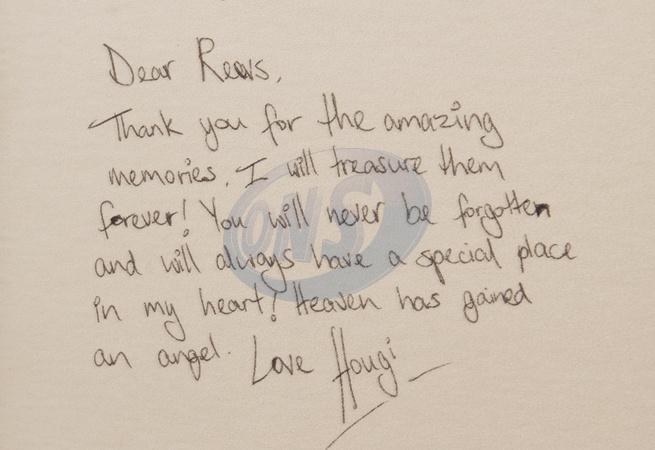 Dear Rews,
Thank you for the amazing
memories. I will treasure them
forever! You will never be forgotten
and will always have a special place
in my heart! Heaven has gained
an angel. Love Hougi
ONS